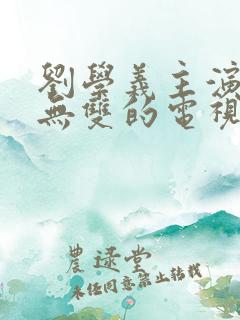 劉學義主演
無雙的電視
農逺堂
未经同意禁止转载